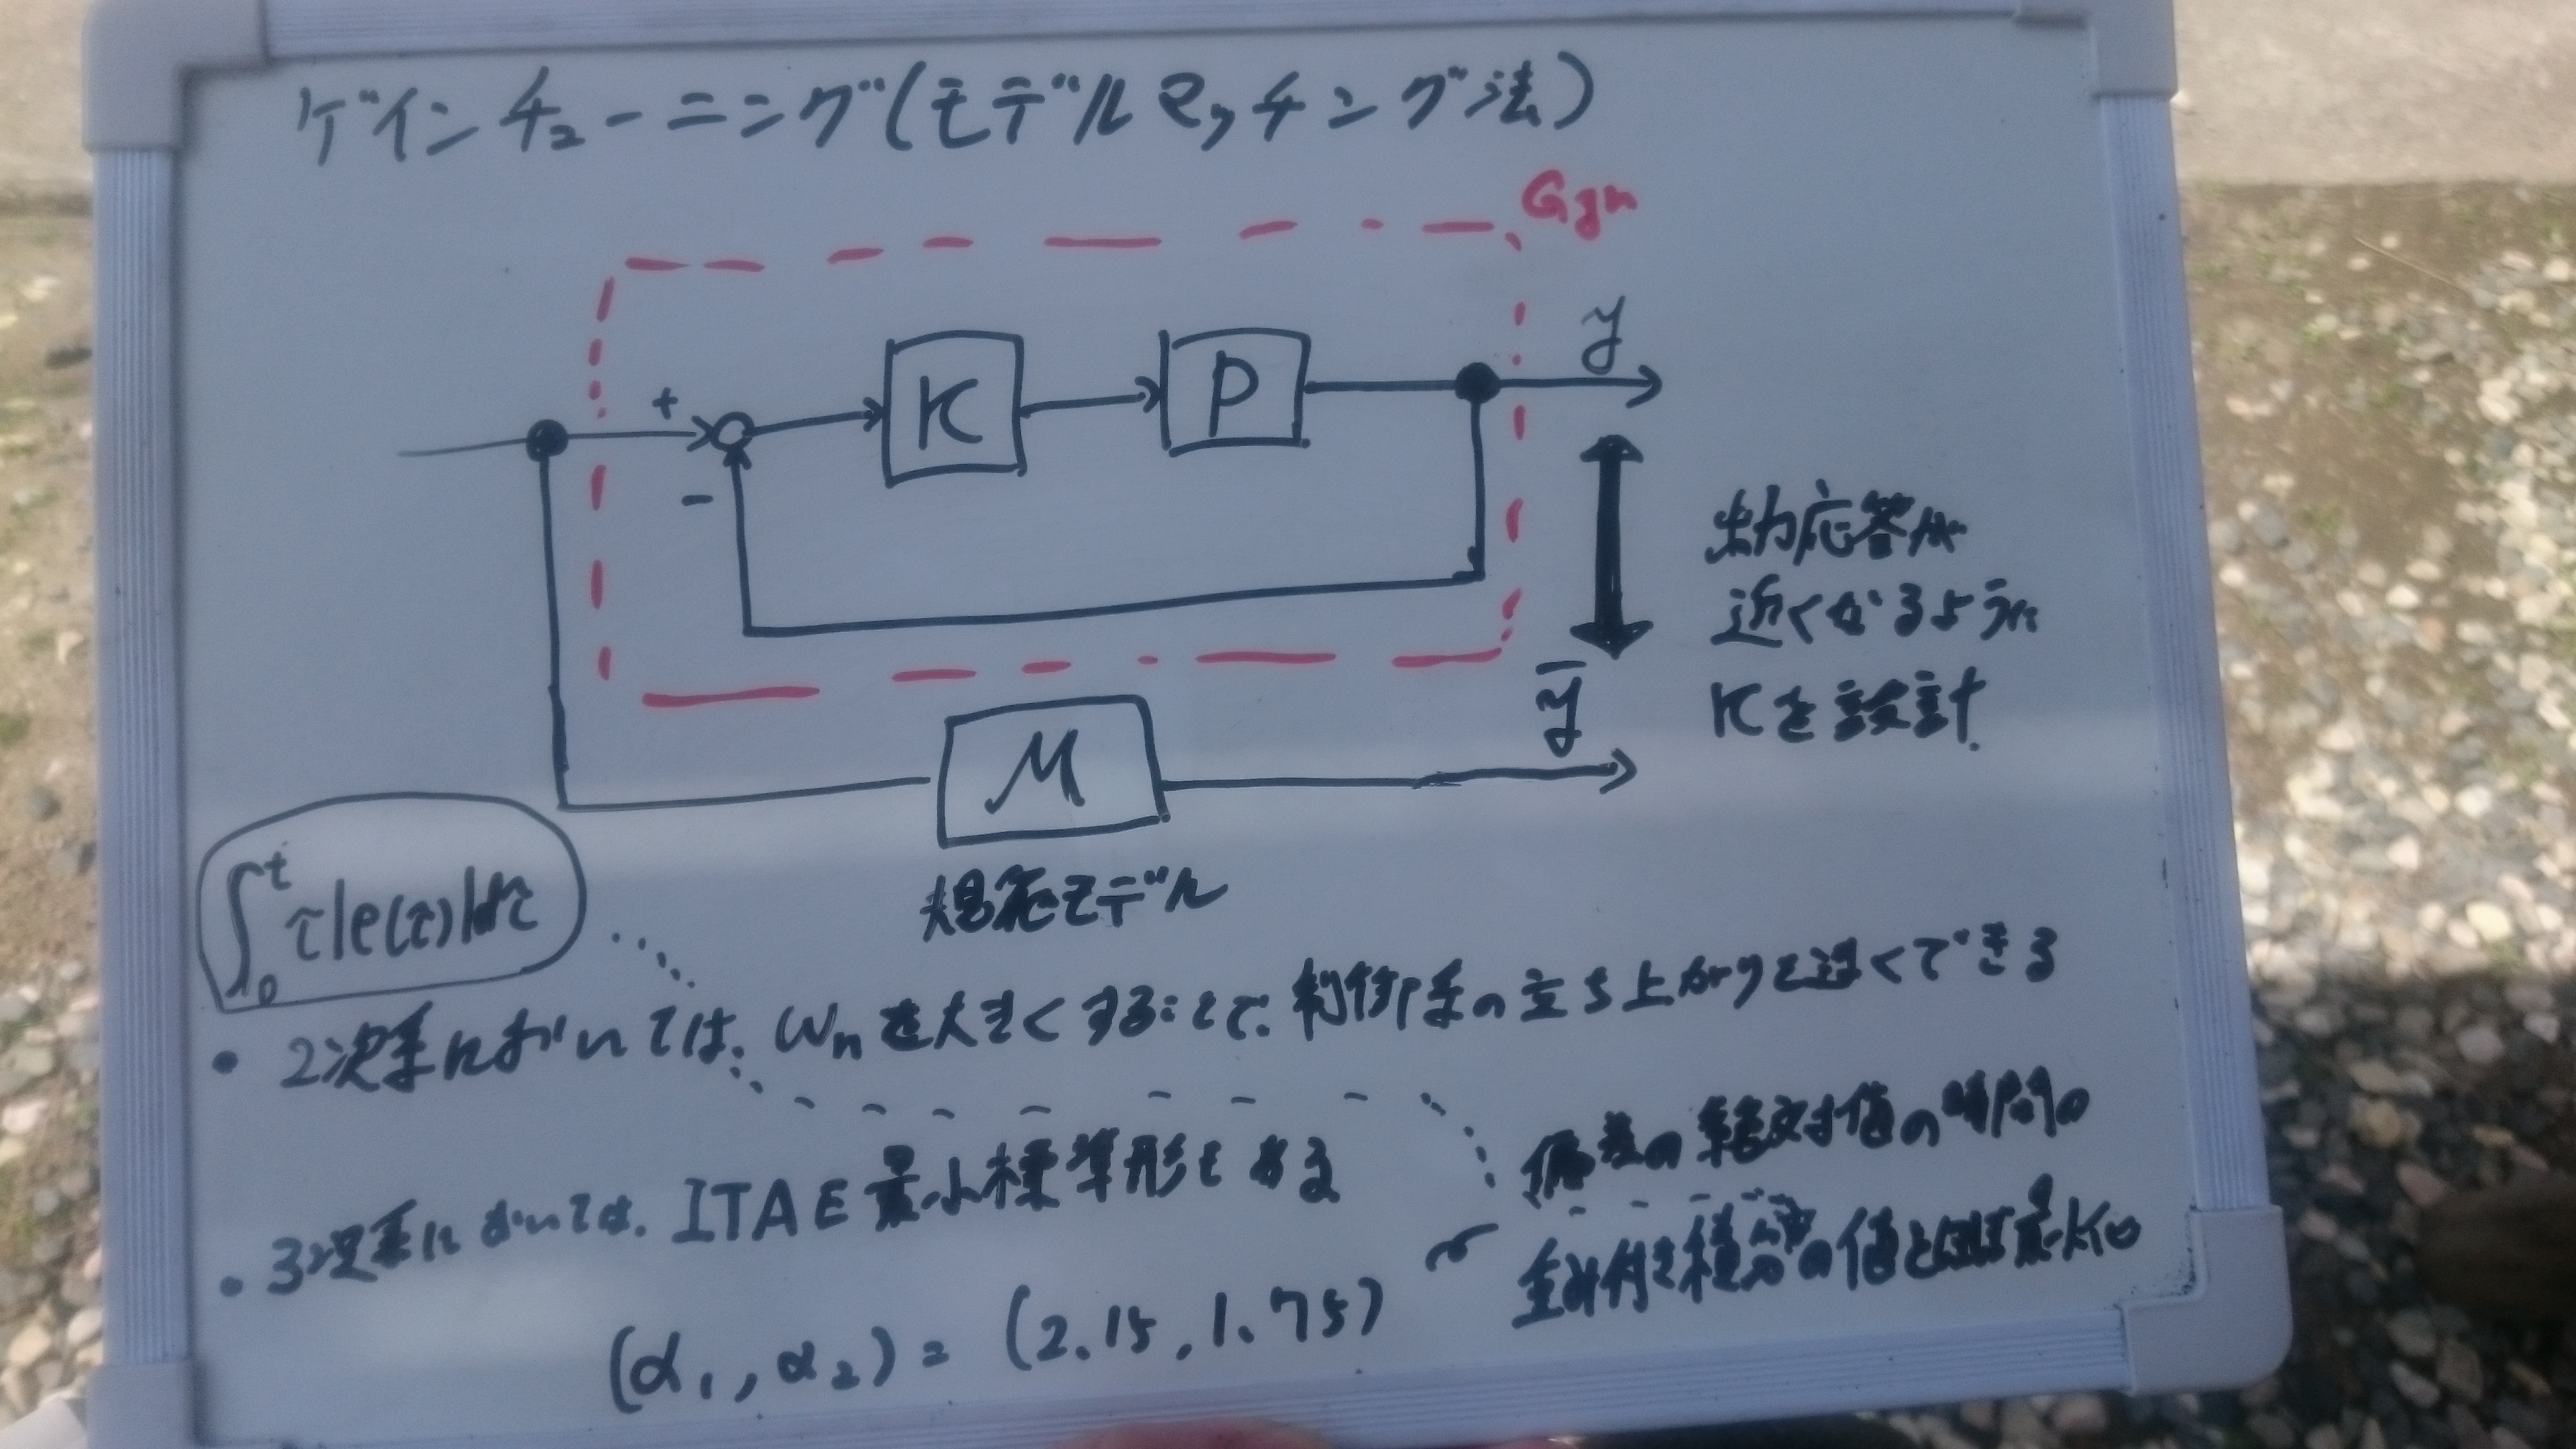 ゲインチューニング(モデルマッチング法)
Gyr
+
K
P
y
-
出力応答が
近くなるように
Kを設計.
M
ȳ
規範モデル
∫₀ᵗ τ|e(τ)|dτ
• 2次系においては、ωnを大きくすることで、制御系の立ち上がりを速くできる
• 3次系においては、ITAE最小標準形もある
偏差の絶対値の時間の
重み付き積分の値
(α₁, α₂) = (2.15, 1.75)